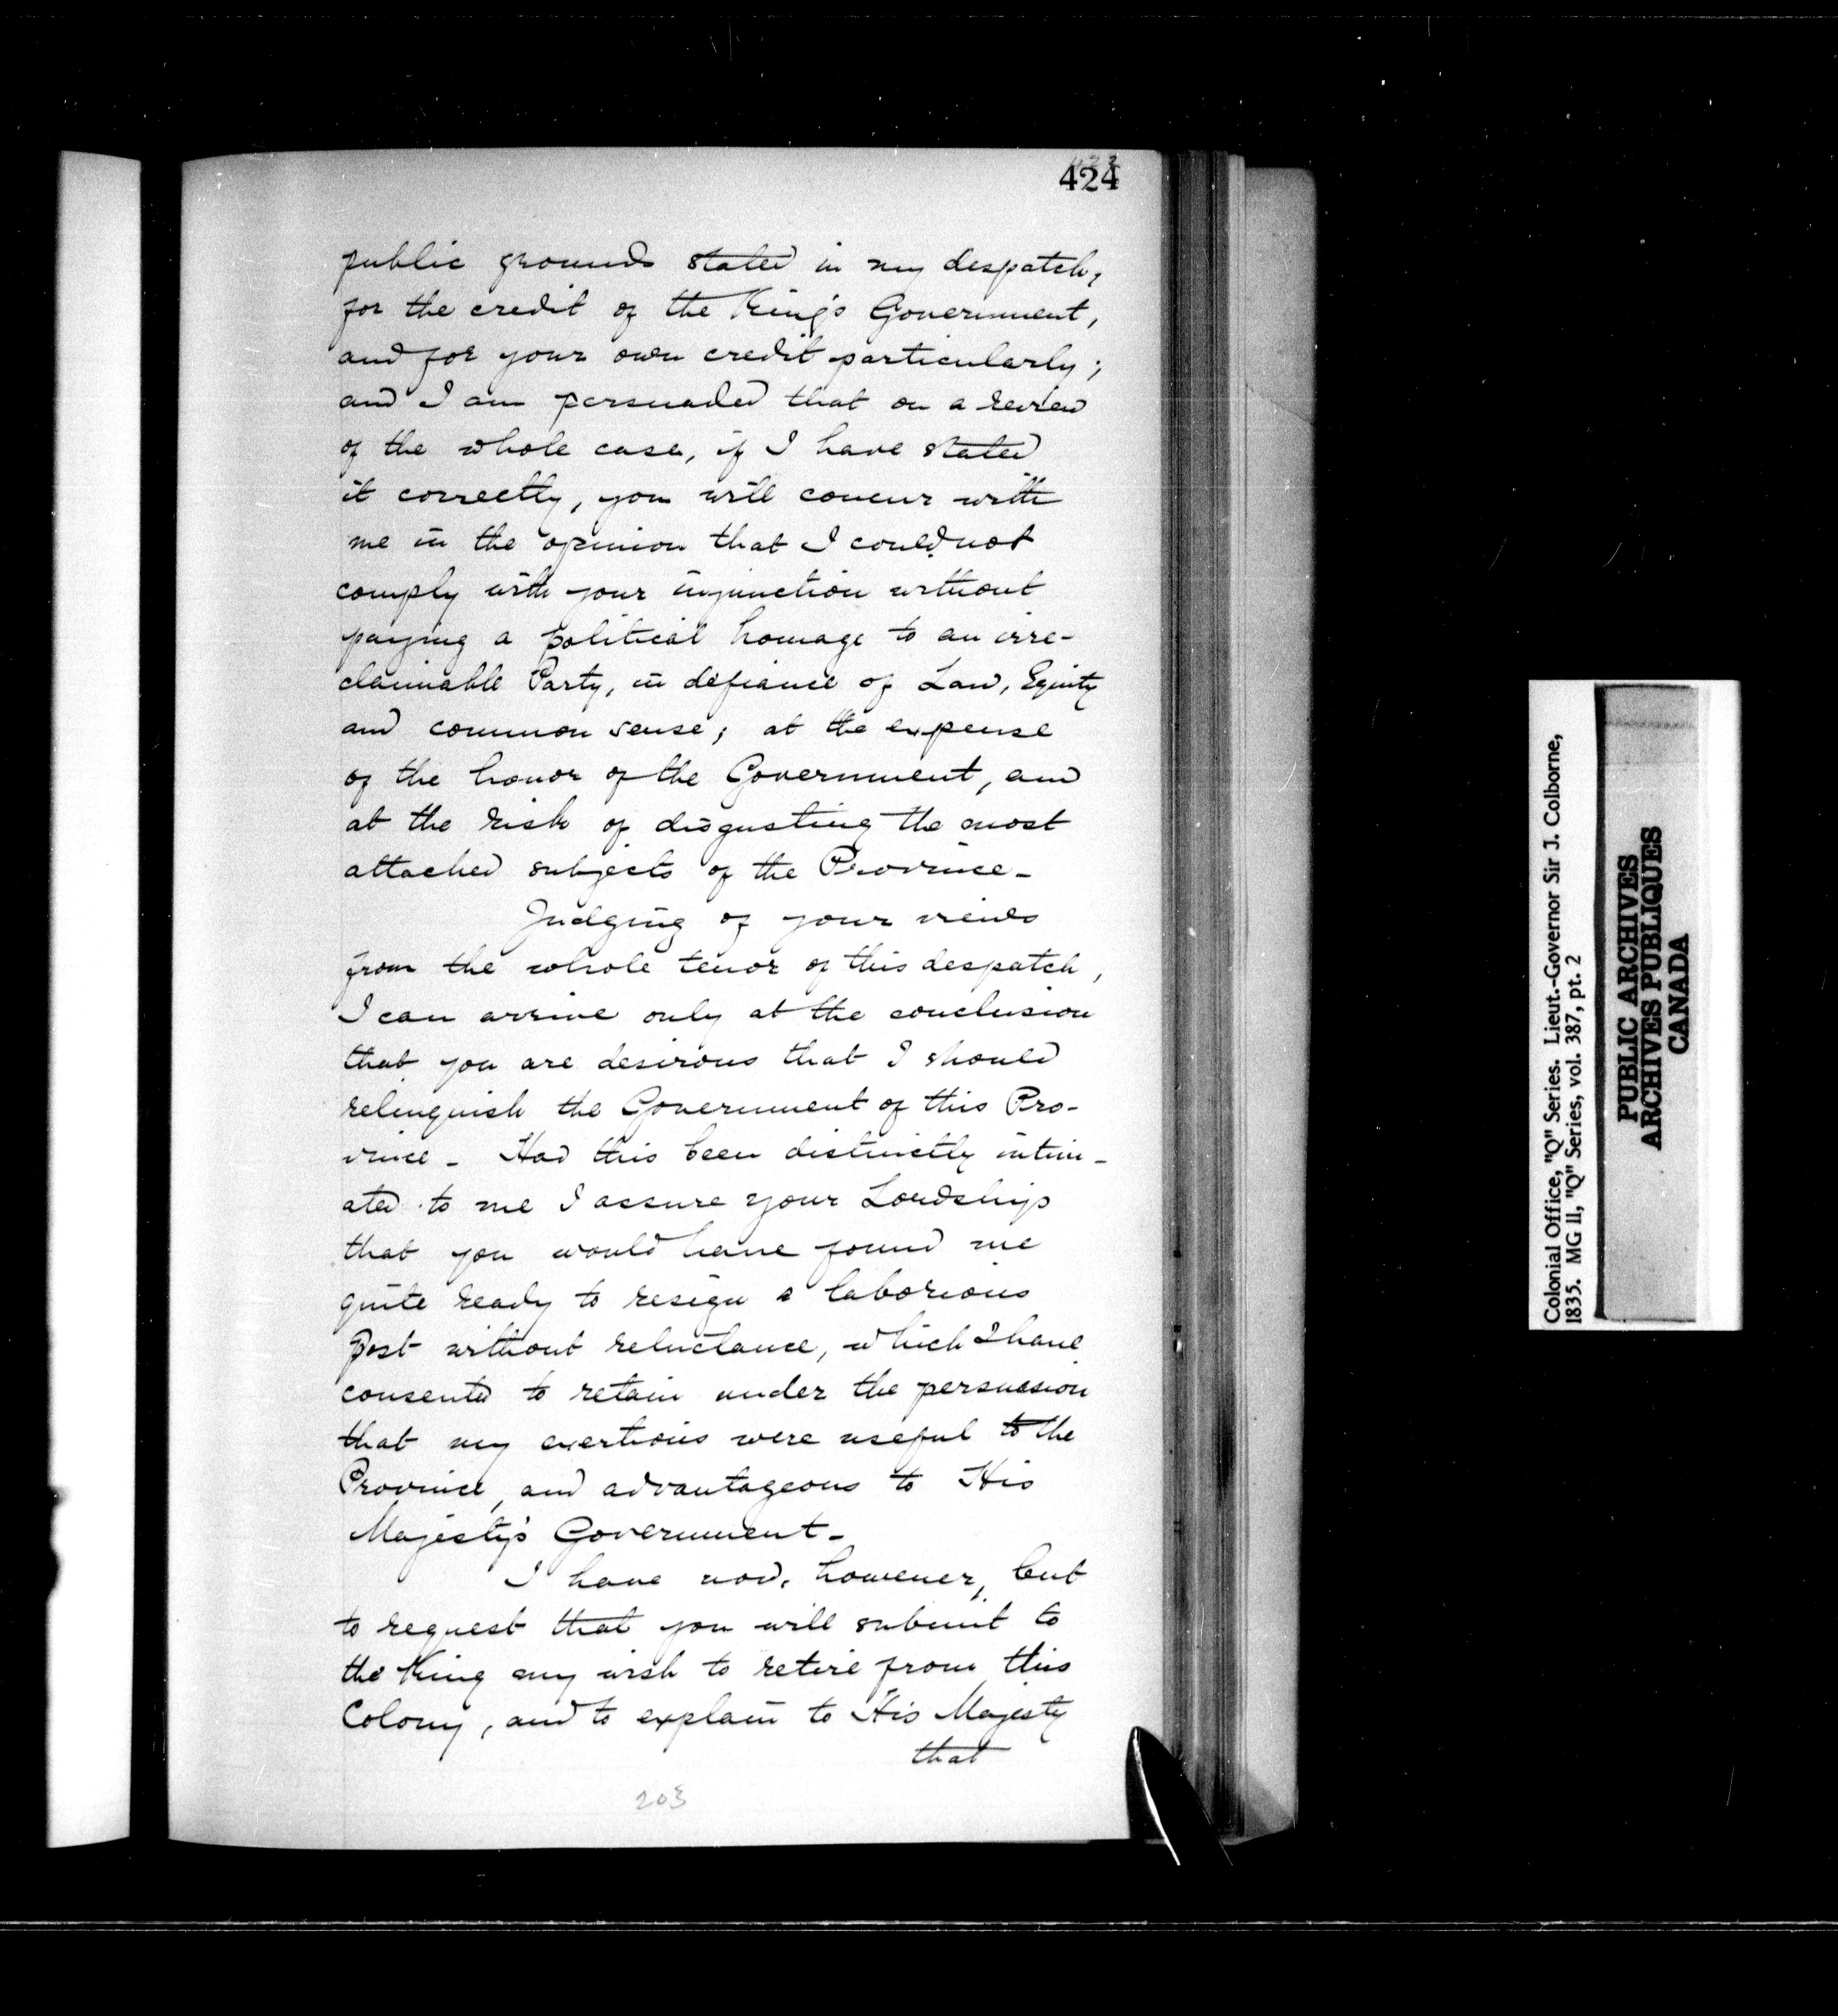 424
public grounds stated in my despatch,
for the credit of the King's Government,
and for your own credit particularly;
and I am persuaded that on a review
of the whole case, if I have stated
it correctly, you will concur with
me in the opinion that I could not
comply with your injunction without
paying a political homage to an irre-
claimable Party, in defiance of Law, Equity
and common sense; at the expense
of the honor of the Government, and
at the risk of disgusting the most
attached subjects of the Province -
Judging of your views
from the whole tenor of this despatch,
I can arrive only at the conclusion
that you are desirous that I should
relinquish the Government of this Pro-
vince - Had this been distinctly intim-
ated to me I assure your Lordship
that you would have found me
quite ready to resign a laborious
post without reluctance, which I have
consented to retain under the persuasion
that my exertions were useful to the
Province, and advantageous to His
Majesty's Government -
I have now, however, but
to request that you will submit to
the King my wish to retire from this
Colony, and to explain to His Majesty
that
203
Colonial Office, "Q" Series. Lieut.-Governor Sir J. Colborne,
1835. MG 11, "Q" Series, vol. 387, pt. 2
PUBLIC ARCHIVES
ARCHIVES PUBLIQUES
CANADA